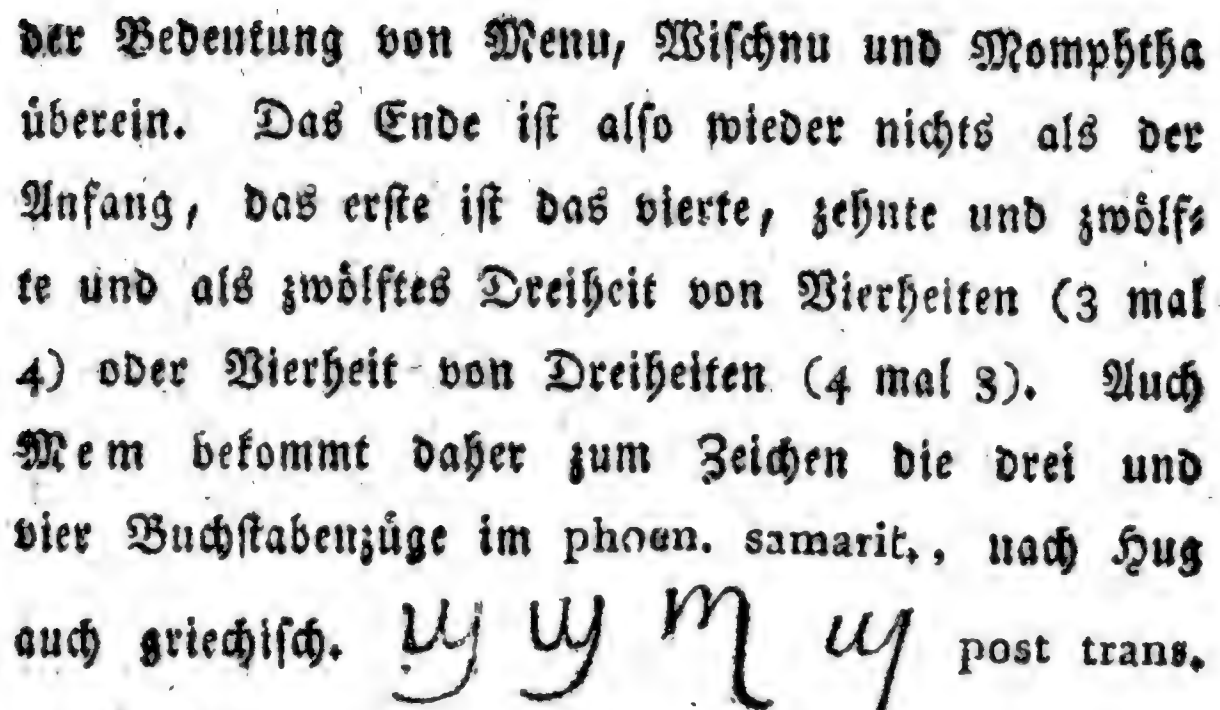 der Bedeutung von Menu, Wischnu und Momphtha
überein. Das Ende ist also wieder nichts als der
Anfang, das erste ist das vierte, zehnte und zwölf-
te und als zwölftes Dreiheit von Vierheiten (3 mal
4) oder Vierheit von Dreiheiten (4 mal 3). Auch
Mem bekommt daher zum Zeichen die drei und
vier Buchstabenzüge im phoen. samarit., nach Hug
auch griechisch. post trans.